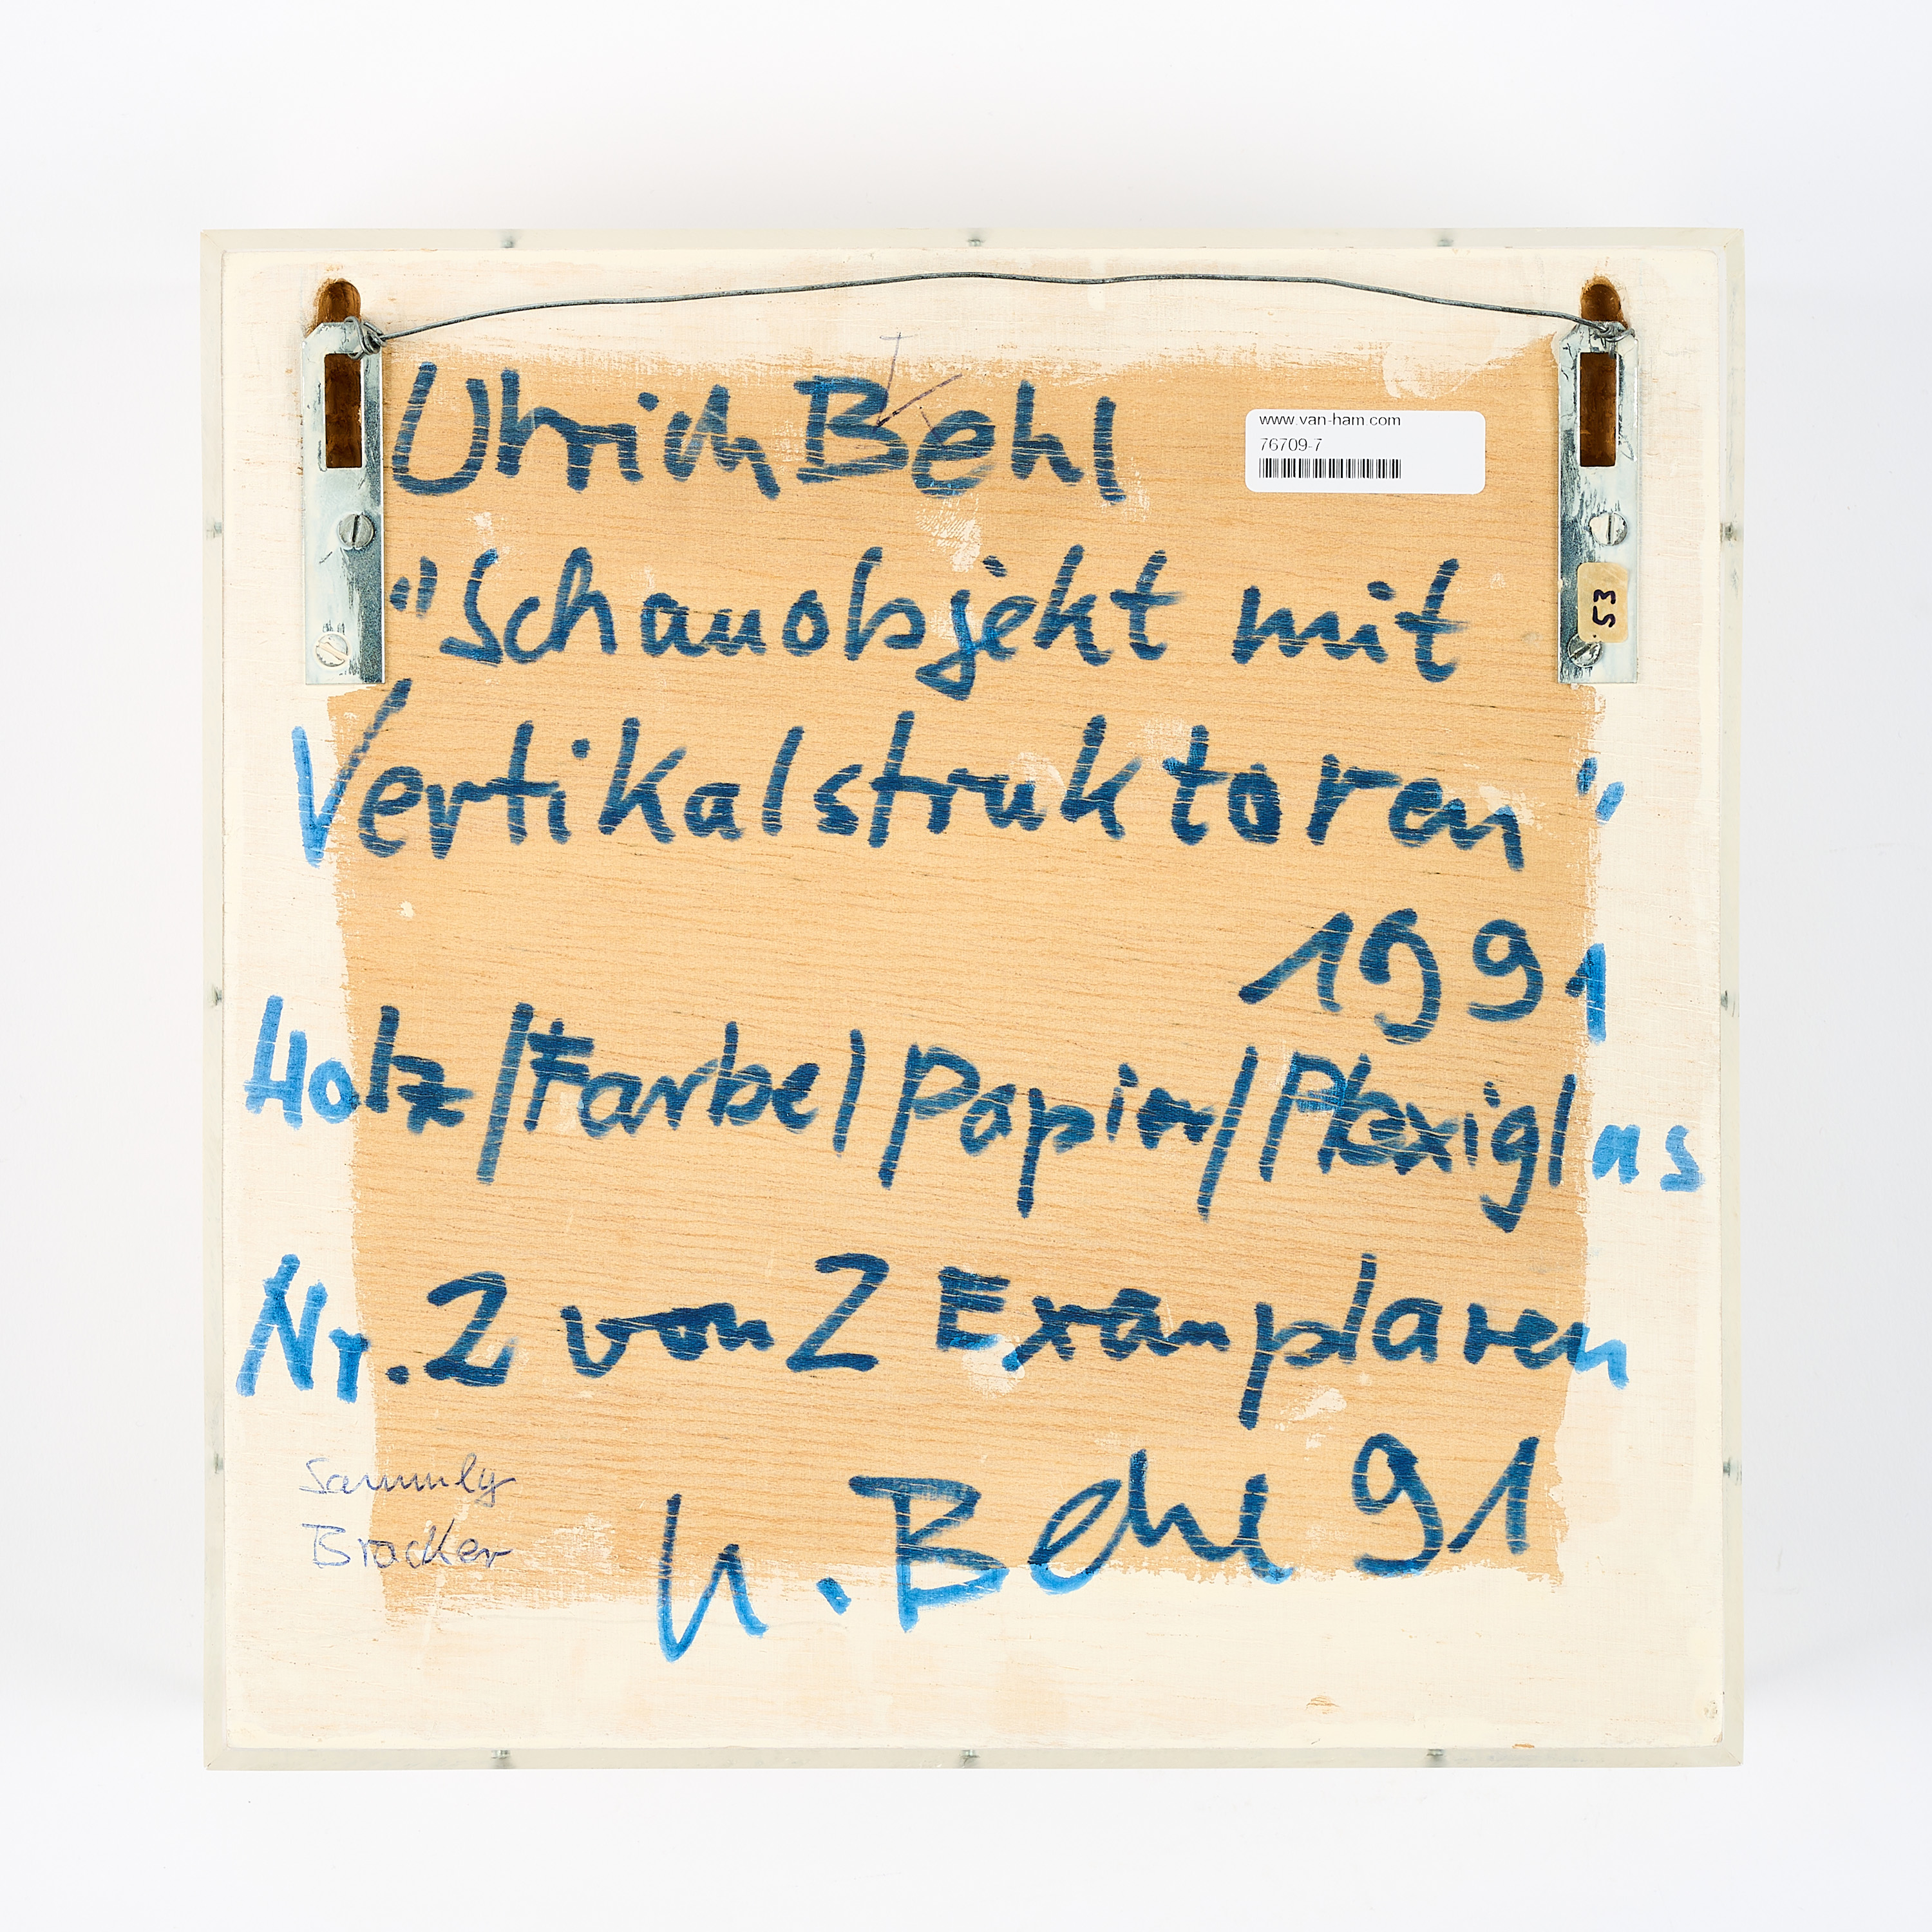 Ulrich Behl
www.van-ham.com
76709-7
"Schauobjekt mit
53
Vertikalstrukturen"
1991
Holz/Farbe/Papier/Plexiglas
Nr. 2 von 2 Exemplaren
Sammlg
Bracker
U. Behl 91